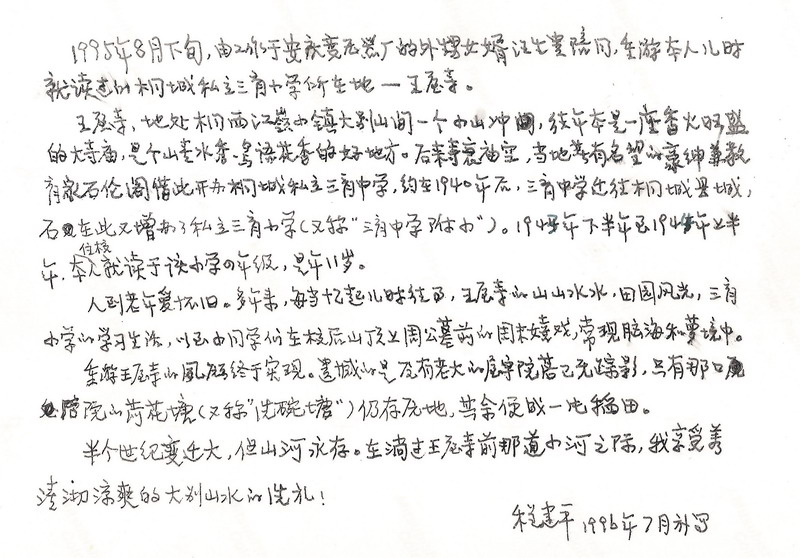 1995年8月下旬，由工作于安庆变压器厂的外甥女婿汪生贵陪同，重游本人儿时
就读过的桐城私立三育小学所在地—王屋寺。
王屋寺，地处桐西江岭小镇大别山间一个小山冲间，往年本是一座香火旺盛
的大寺庙，是个山青水香、鸟语花香的好地方。后来寺衰庙空，当地著有名望的豪绅兼教
育家石伦阁借此开办桐城私立三育中学，约在1940年后，三育中学迁往桐城县城，
石又在此又增办了私立三育小学（又称“三育中学附小”）。194年下半年至194年上半
年，本人住校就读于该小学四年级，是年11岁。
人到老年爱怀旧。多年来，每当忆起儿时往事，王屋寺的山山水水，田园风光，三育
小学的学习生活，以及小同学们在校后山顶上周公墓前的周末嬉戏，常现脑海和梦境中。
重游王屋寺的夙愿终于实现。遗憾的是原有老大的屋宇院落已无踪影，只有那口
院的荷花塘（又称“洗碗塘”）仍存原地，其余便成一片稻田。
半个世纪变迁大，但山河永存。在淌过王屋寺前那道小河之际，我享受着
清沏凉爽的大别山水的洗礼！
程建平 1996年7月补写